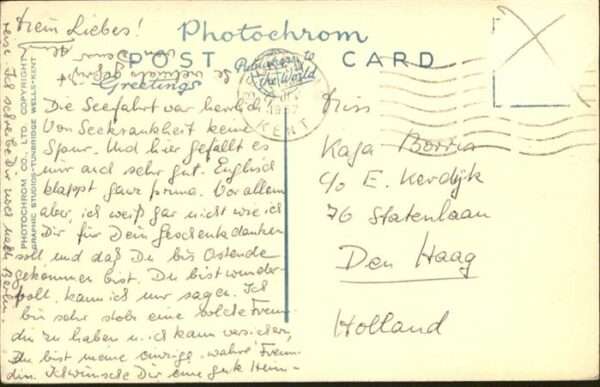 Mein Liebes!
Photochrom
POST CARD
Publishers to
the World
Greetings
KENT
PHOTOCHROM CO., LTD. COPYRIGHT
GRAPHIC STUDIOS-TUNBRIDGE WELLS-KENT
Die Seefahrt war herrlich,
Von Seekrankheit keine
Spur. Und hier gefällt es
mir auch sehr gut. Englisch
klappt ganz prima. Vor allem
aber, ich weiß gar nicht wie ich
Dir für Dein Geschenk danken
soll und daß Du bis Ostende
gekommen bist. Du bist wunder-
voll, kann ich nur sagen. Ich
bin sehr stolz eine solche Freun-
din zu haben u. ich kann versichern,
Du bist meine einzige "wahre" Freun-
din. Ich wünsche Dir eine gute Heim-
reise. Ich schreibe Dir nach Berlin.
Miss
Kaja
c/o E. Kerdijk
76 Statenlaan
Den Haag
Holland